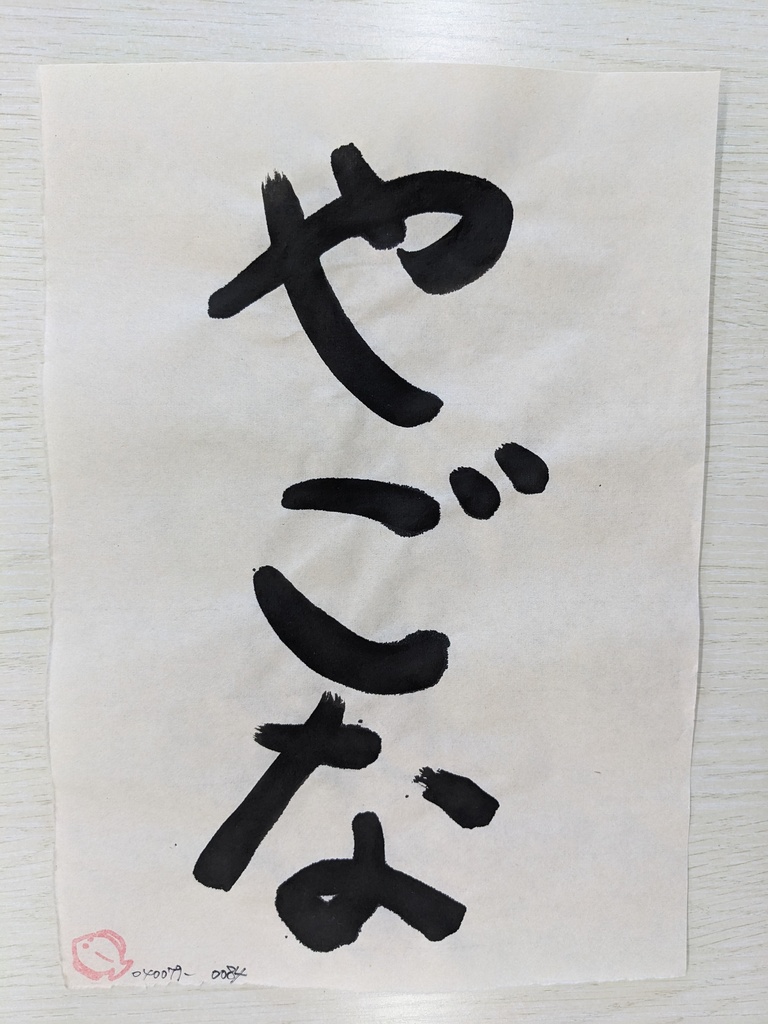 やごな
040079- 0084